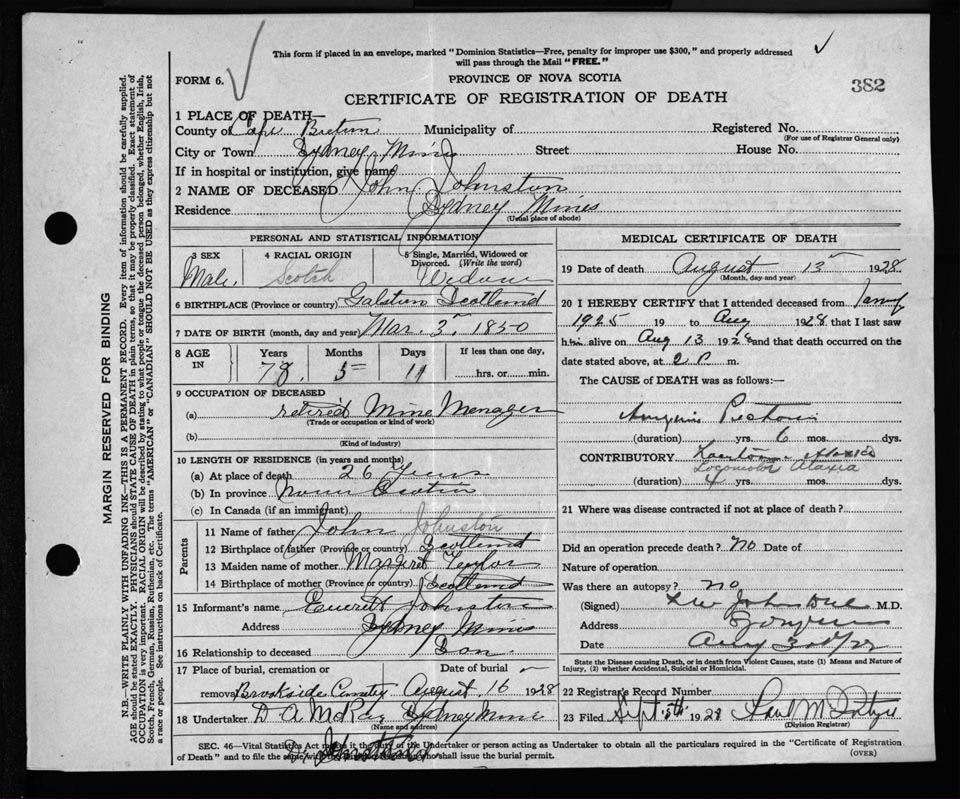 This form if placed in an envelope, marked "Dominion Statistics—Free, penalty for improper use $300," and properly addressed
will pass through the Mail "FREE."
FORM 6.
PROVINCE OF NOVA SCOTIA
382
CERTIFICATE OF REGISTRATION OF DEATH
1 PLACE OF DEATH—
County of Cape Breton Municipality of Registered No.
(For use of Registrar General only)
City or Town Sydney Mines Street House No.
If in hospital or institution, give name
2 NAME OF DECEASED John Johnston
Residence Sydney Mines
(Usual place of abode)
PERSONAL AND STATISTICAL INFORMATION
3 SEX 4 RACIAL ORIGIN 5 Single, Married, Widowed or
Divorced. (Write the word)
Male. Scotch
6 BIRTHPLACE (Province or country) Galston Scotland
7 DATE OF BIRTH (month, day and year) Mar. 3 1850
8 AGE IN Years Months Days If less than one day,
78. 5 11 hrs. or min.
9 OCCUPATION OF DECEASED
(a) retired Mine Manager
(Trade or occupation or kind of work)
(b)
(Kind of industry)
10 LENGTH OF RESIDENCE (in years and months)
(a) At place of death 26 years
(b) In province Nova Scotia
(c) In Canada (if an immigrant)
Parents
11 Name of father John Johnston
12 Birthplace of father (Province or country) Scotland
13 Maiden name of mother Margaret Taylor
14 Birthplace of mother (Province or country) Scotland
15 Informant's name Everett Johnston
Address Sydney Mines
16 Relationship to deceased Son.
17 Place of burial, cremation or Date of burial
removal Brookside Cemetery August 16 1928
18 Undertaker D A McRae Sydney Mines
(Name and address)
MEDICAL CERTIFICATE OF DEATH
19 Date of death August 13 1928
(Month, day and year)
20 I HEREBY CERTIFY that I attended deceased from
1925 19 to Aug 1928 that I last saw
him alive on Aug 13 1928 and that death occurred on the
date stated above, at 2 P. m.
The CAUSE OF DEATH was as follows:—
Angina Pectoris
(duration) yrs. 6 mos. dys.
CONTRIBUTORY
Locomotor Ataxia
(duration) 4 yrs. mos. dys.
21 Where was disease contracted if not at place of death?
Did an operation precede death? No Date of
Nature of operation
Was there an autopsy? no
(Signed) M.D.
Address
Date Aug
State the Disease causing Death, or in death from Violent Causes, state (1) Means and Nature of
Injury, (2) whether Accidental, Suicidal or Homicidal.
22 Registrar's Record Number
23 Filed Sept. 5th 1928
(Division Registrar)
SEC. 46—Vital Statistics Act makes it the duty of the Undertaker or person acting as Undertaker to obtain all the particulars required in the "Certificate of Registration
of Death" and to file the same with the Division Registrar who shall issue the burial permit.
(OVER)
MARGIN RESERVED FOR BINDING
N.B.—WRITE PLAINLY WITH UNFADING INK—THIS IS A PERMANENT RECORD. Every item of information should be carefully supplied.
AGE should be stated EXACTLY. PHYSICIANS should STATE CAUSE OF DEATH in plain terms, so that it may be properly classified. Exact statement of
OCCUPATION is very important. RACIAL ORIGIN will be described by stating to what people or tongue the deceased person belonged, whether English, Irish,
Scotch, French, German, Russian, Ruthenian, etc. The terms "AMERICAN" or "CANADIAN" SHOULD NOT BE USED as they express citizenship but not
a race or people. See instructions on back of Certificate.